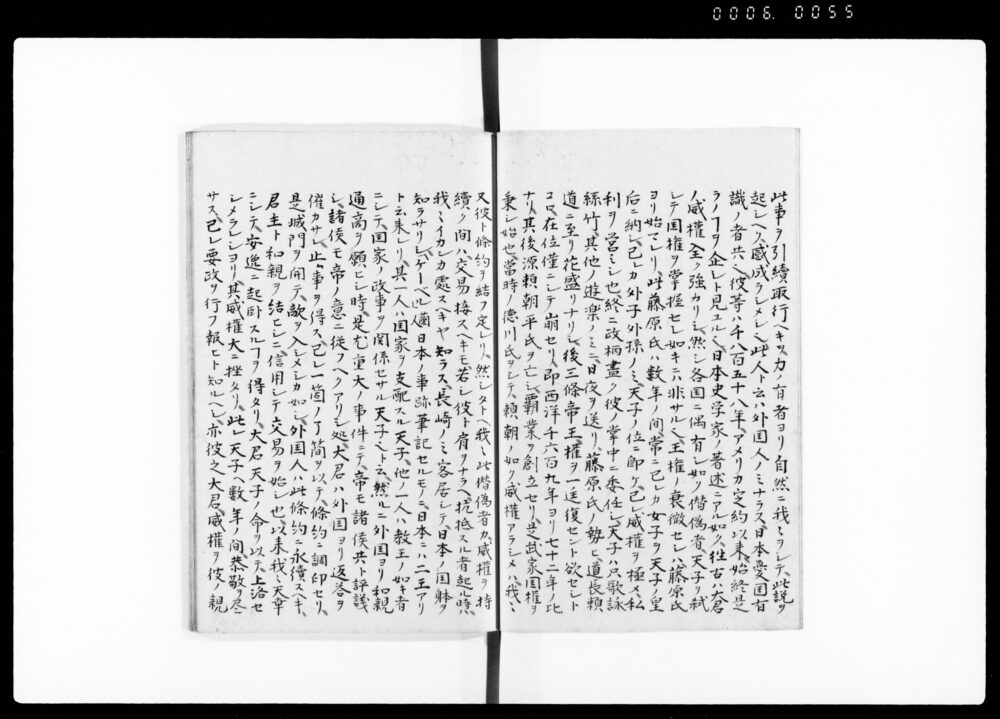 0006. 0055
此事ヲ引續取行ヘキヲ力ノ有者ヨリ自然ニ我ミヲシテ、此説ヲ
起シヘク感成ラシメシミ、此人ト云ハ外国人ノミナラス、日本愛国有
識ノ者共ミ、彼等ハ千八百五十八年、アメリカ定約以来、始終是
ラノヿヲ企シト見エルミ、日本史学家ノ著述ニアル如ク、往古ハ大君
ノ威權全ク強カリシミ、然シ各国ニ偶有シ如ク、僭偽者天子ヲ弑
シテ国権ヲ掌握セシ如キニハ非サルミ、王權ノ衰微セシハ藤原氏
ヨリ始マレリ、此藤原氏ハ数年ノ間常ニ己レカ女子ヲ天子ノ皇
后ニ納レ、己レカ外子外孫ノミ天子ノ位ニ即ケ、己レ威權ヲ極メ、私
利ヲ営ミシ也、終ニ政柄盡ク彼ノ掌中ニ委任シ、天子ハ只歌詠
絲竹其他ノ遊楽ノミニ日夜ヲ送リ、藤原氏ノ勢ヒ道長頼
道ニ至リ花盛リナリシ、後三條帝王權ヲ一廷復セント欲セシト
コロ、在位僅ニシテ崩セリ、即西洋千六百九年ヨリ七十二年ノ比
ナリ、其後源頼朝平氏ヲ亡シ、覇業ヲ創立セリ、是武家国權ヲ
秉シ始也、當時ノ徳川氏ヲシテ頼朝ノ如ク威權アラシメハ、我ミ
又彼ト條約ヲ結フ定レリ、然シタトヘ我ミ此僭偽者カ威權ヲ持
續ク間ハ交易接スヘキモ、若シ彼ト肩ヲナラヘ抗抵スル者起ル時ハ
我ミイカンカ處スヘキヤ知ラス、長崎ノミ客居シテ、日本ノ国躰ヲ
知ラサリシケーベル備日本ノ事跡筆記セルモノニ、日本ニハ二王アリ
ト云来レリ、其一人ハ国家ヲ支配スル天子、他ノ一人ハ教王ノ如キ者
ニシテ国家ノ政事ヲ関係セサル天子ミト云、然ルニ外国ヨリ和親
通商ヲ願ヒシ時、是尤重大ノ事件ニテ、帝モ諸侯共ト評議
シ、諸侯モ帝ノ意ニ從フヘクアリシ処、大君ハ外国ヨリ返答ヲ
催カサレ、止事ヲ得ス己レ一箇ノ了簡ヲ以テ條約ニ調印セリ、
是城門ヲ開テ敵ヲ入シメシカ如シ、外国人ハ此條約ニ永續スヘキ
君主ト和親ヲ結ヒシニ信用シテ交易ヲ始シ也、以来我ミ天幸
ニシテ安逸ニ起卧スルヿヲ得タリ、大君天子ノ命ヲ以テ上洛セ
シメラレシヨリ、其威權大ニ挫タリ、此レ天子ヘ数年ノ間恭敬ヲ尽
サス、己レ要政ヲ行フ報ヒト知ルヘシ、亦彼之大君威權ヲ彼ノ親